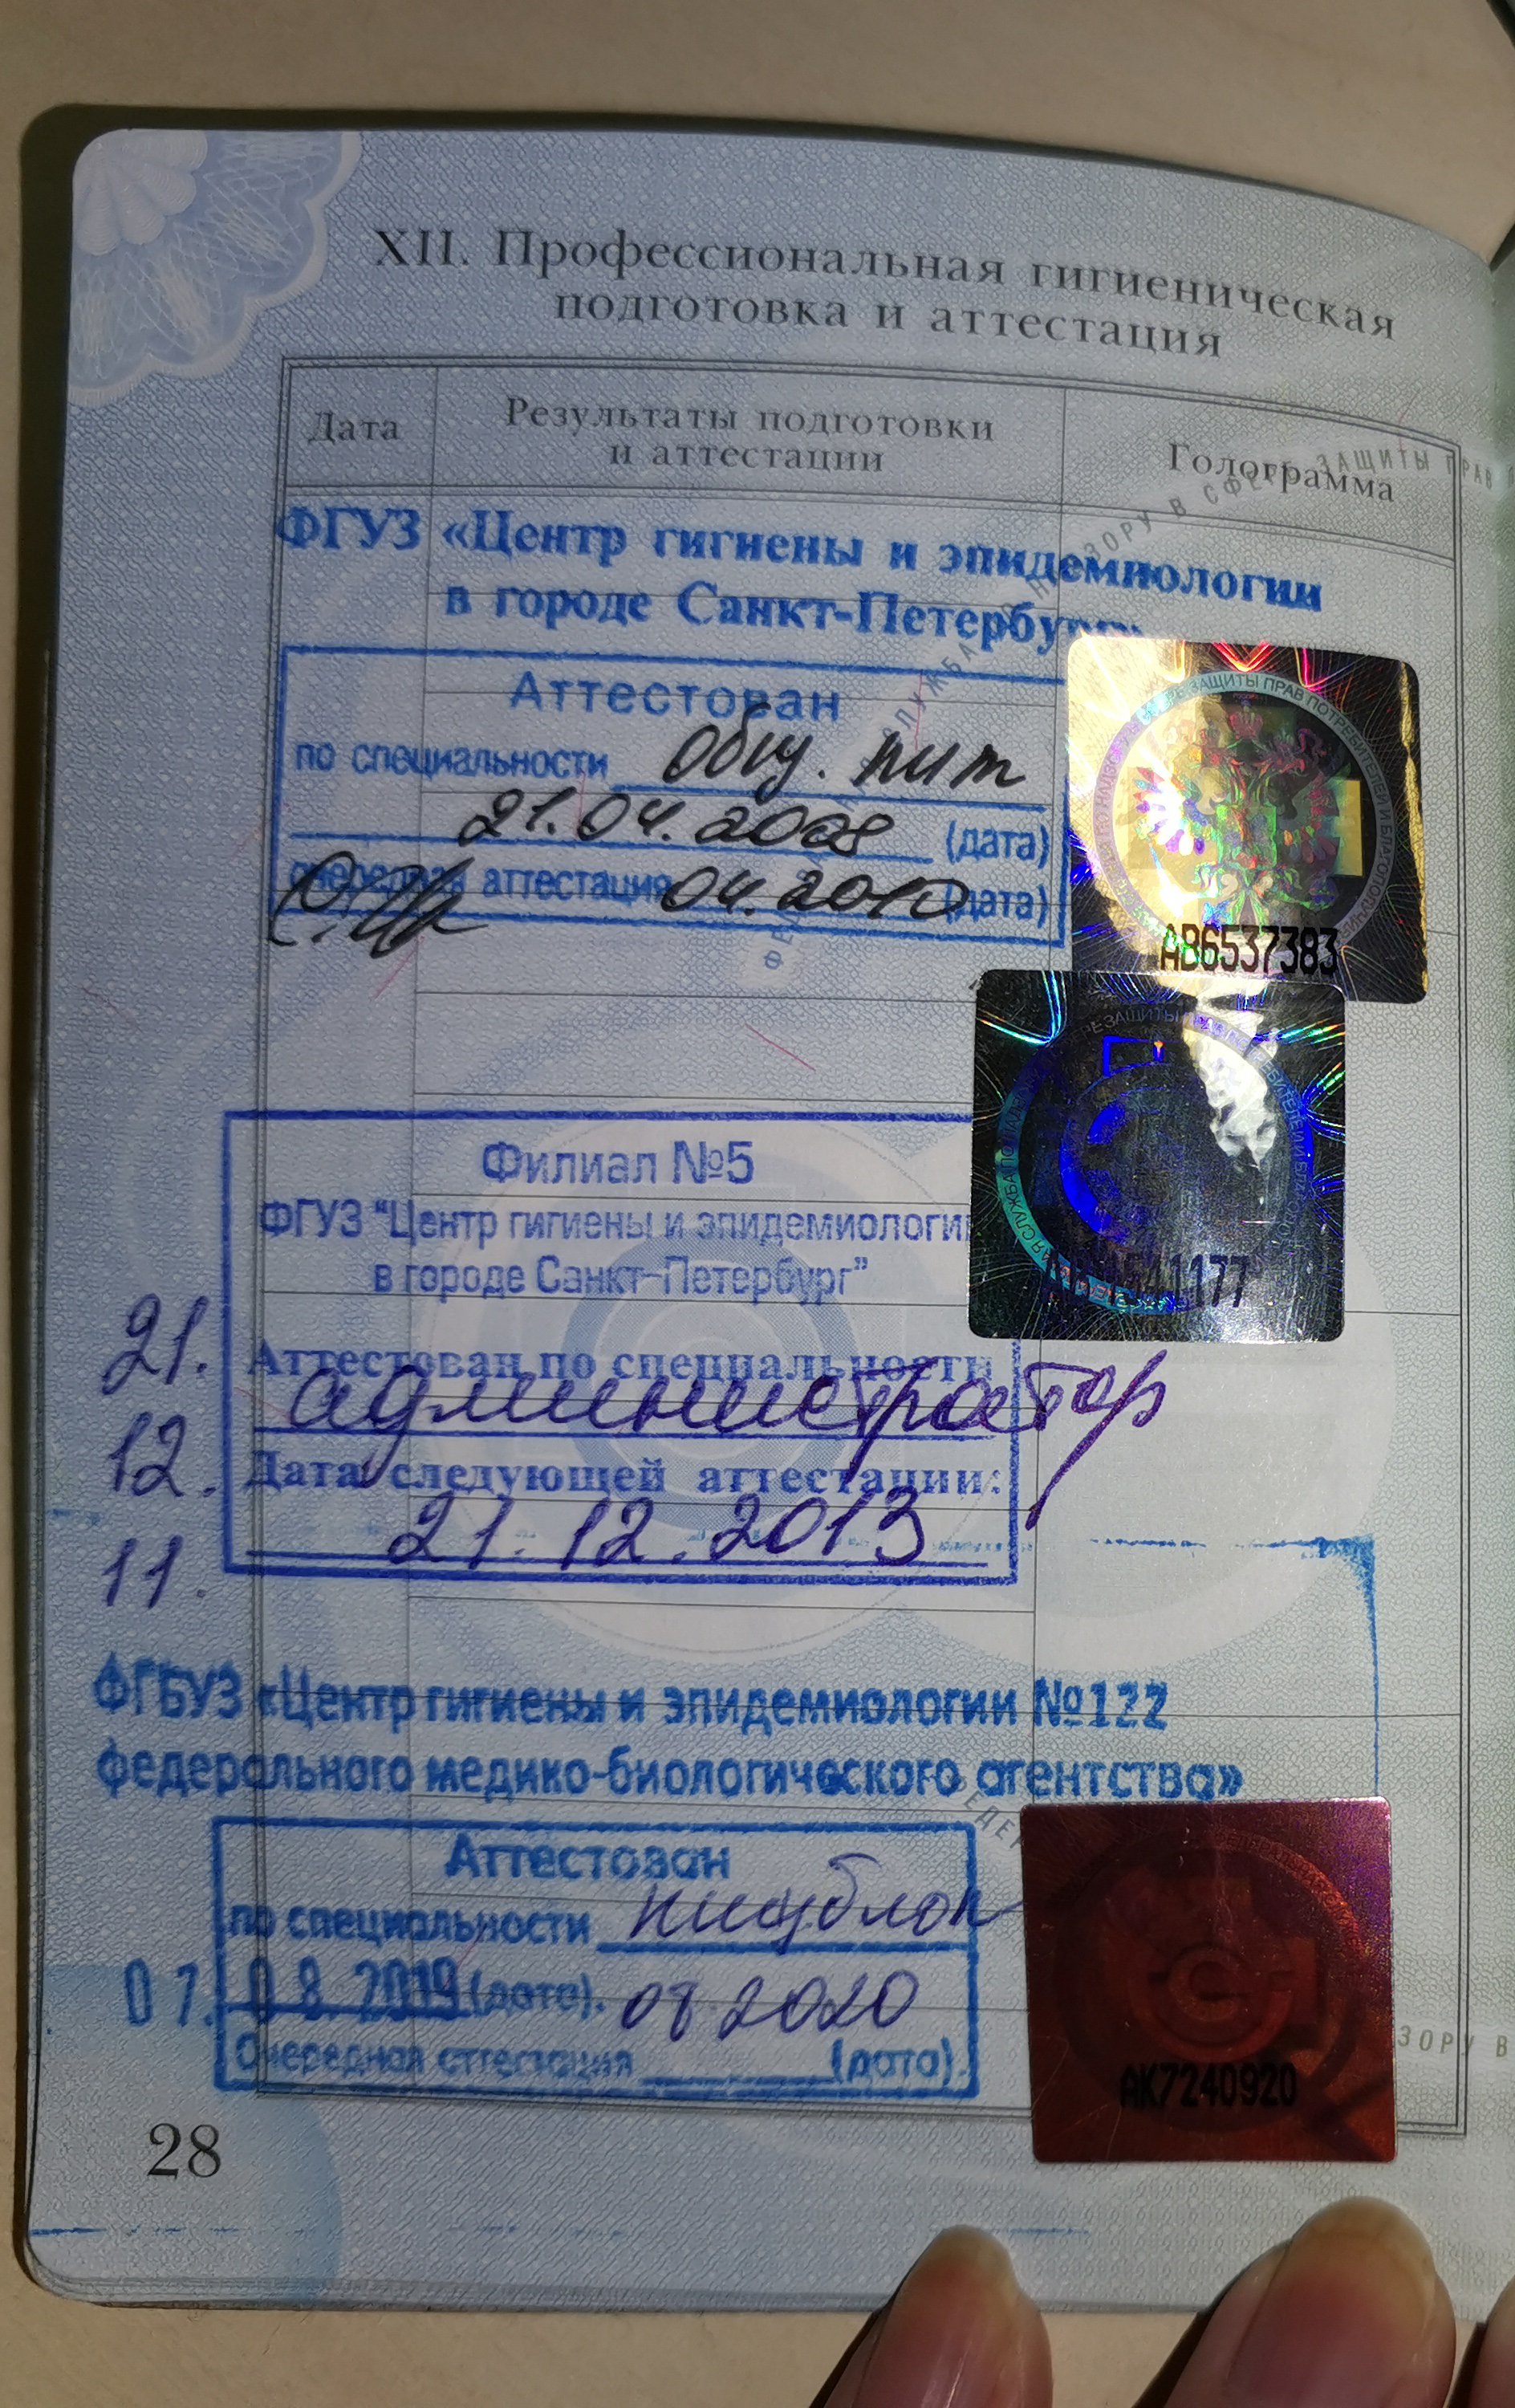 XII. Профессиональная гигиеническая
подготовка и аттестация
Дата
Результаты подготовки
и аттестации
Голограмма
ФГУЗ «Центр гигиены и эпидемиологии
в городе Санкт-Петербург»
Аттестован
по специальности общ. пит
21.04.2008 (дата)
очередная аттестация 04.2010 (дата)
АВ6537383
Филиал №5
ФГУЗ "Центр гигиены и эпидемиологии
в городе Санкт-Петербург"
1177
21.
Аттестован по специальности
администратор
12.
Дата следующей аттестации:
21.12.2013
11.
ФГБУЗ «Центр гигиены и эпидемиологии №122
федерального медико-биологического агентства»
Аттестован
по специальности пищеблок
07. 08. 2019 (дата). 08 2020
Очередная аттестация (дата)
АК7240920
28